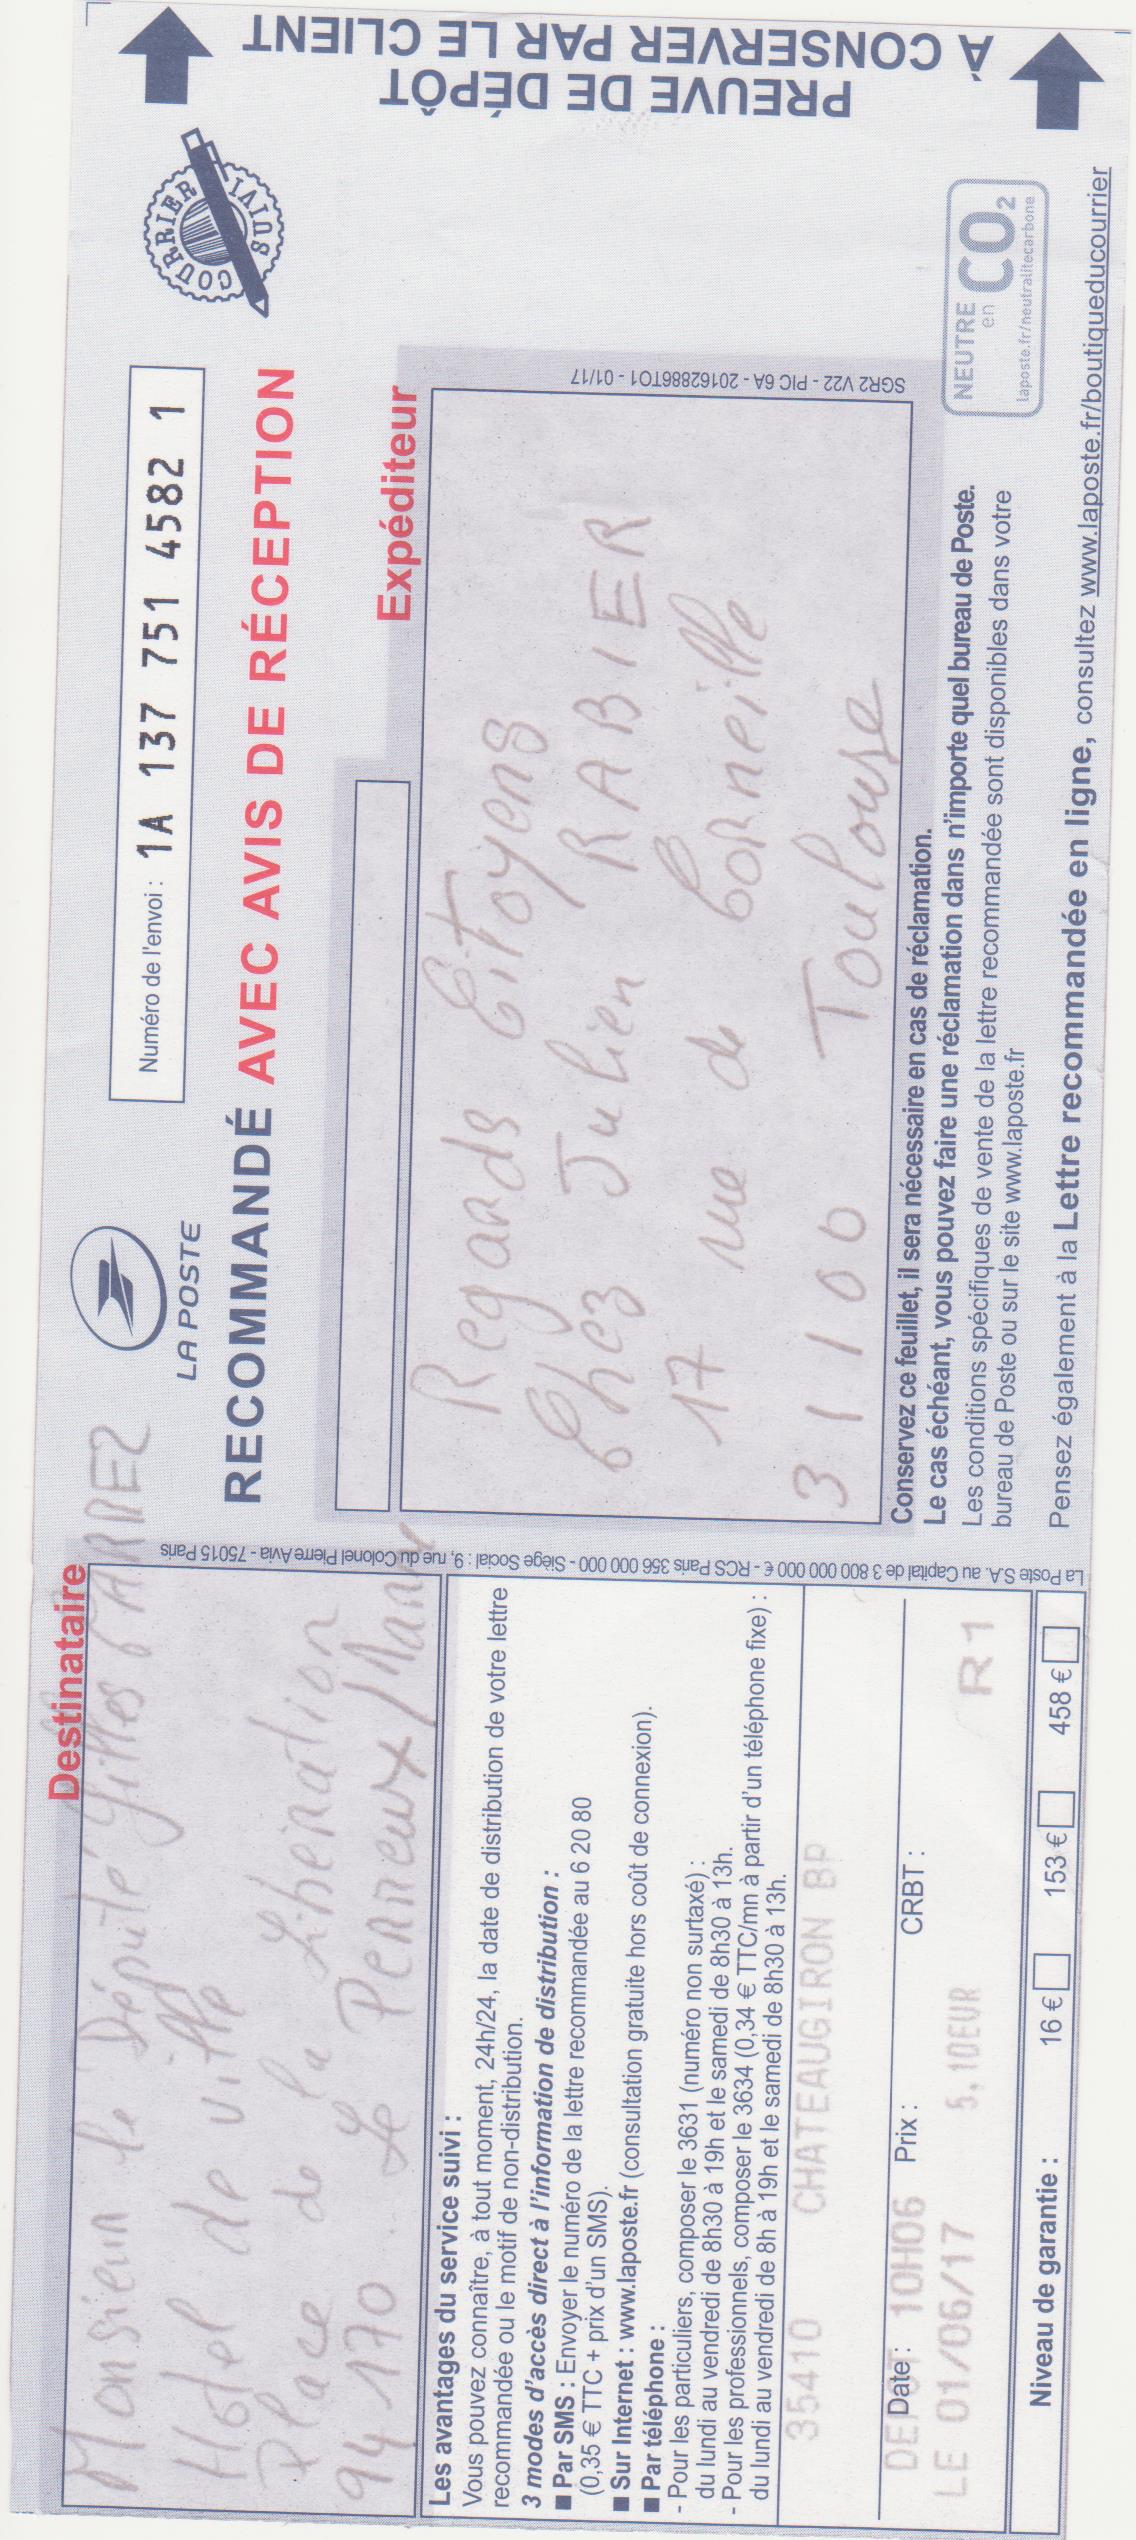 Destinataire
Monsieur le Député Gilles CARREZ
Hôtel de ville
Place de la Libération
94170 Le Perreux/Marne
Les avantages du service suivi :
Vous pouvez connaître, à tout moment, 24h/24, la date de distribution de votre lettre
recommandée ou le motif de non-distribution.
3 modes d'accès direct à l'information de distribution :
■ Par SMS : Envoyer le numéro de la lettre recommandée au 6 20 80
(0,35 € TTC + prix d'un SMS).
■ Sur Internet : www.laposte.fr (consultation gratuite hors coût de connexion).
■ Par téléphone :
- Pour les particuliers, composer le 3631 (numéro non surtaxé) :
du lundi au vendredi de 8h30 à 19h et le samedi de 8h30 à 13h.
- Pour les professionnels, composer le 3634 (0,34 € TTC/mn à partir d'un téléphone fixe) :
du lundi au vendredi de 8h à 19h et le samedi de 8h30 à 13h.
35410 CHATEAUGIRON BP
Date : Prix : CRBT :
DEPOT 10H06
LE 01/06/17 5,10EUR R1
Niveau de garantie : 16 € 153 € 458 €
La Poste S.A. au Capital de 3 800 000 000 € - RCS Paris 356 000 000 - Siège Social : 9, rue du Colonel Pierre Avia - 75015 Paris
LA POSTE
Numéro de l'envoi : 1A 137 751 4582 1
RECOMMANDÉ AVEC AVIS DE RÉCEPTION
COURRIER SUIVI
Expéditeur
Regards Citoyens
Chez Julien RABIER
17 rue de Corneille
31100 Toulouse
SGR2 V22 - PIC 6A - 20162886TO1 - 01/17
Conservez ce feuillet, il sera nécessaire en cas de réclamation.
Le cas échéant, vous pouvez faire une réclamation dans n'importe quel bureau de Poste.
Les conditions spécifiques de vente de la lettre recommandée sont disponibles dans votre
bureau de Poste ou sur le site www.laposte.fr
NEUTRE
en CO2
laposte.fr/neutralitecarbone
Pensez également à la Lettre recommandée en ligne, consultez www.laposte.fr/boutiqueducourrier
PREUVE DE DÉPÔT
À CONSERVER PAR LE CLIENT